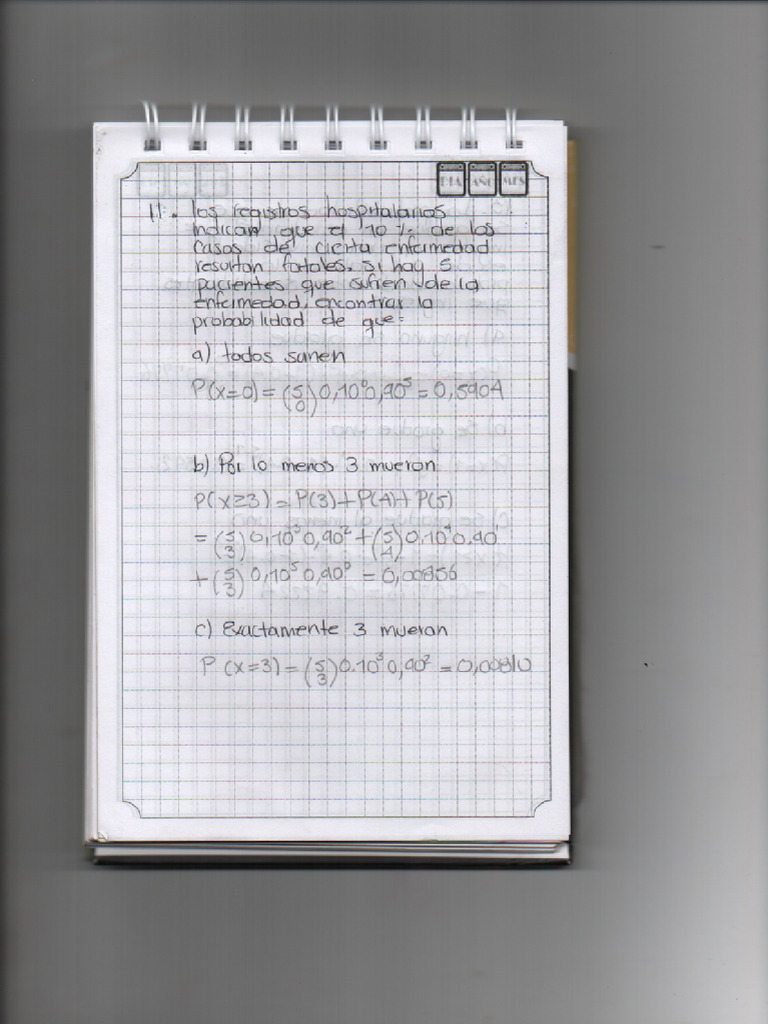 DIA AÑO MES
11. Los registros hospitalarios
indican que el 10 % de los
casos de cierta enfermedad
resultan fatales. Si hay 5
pacientes que sufren de la
enfermedad, encontrar la
probabilidad de que:
a) todos sanen
P(x=0) = (5 0) 0,10⁰ 0,90⁵ = 0,5904
b) Por lo menos 3 mueran
P(x≥3) = P(3) + P(4) + P(5)
= (5 3) 0,10³ 0,90² + (5 4) 0.10⁴ 0.90¹
+ (5 3) 0,10⁵ 0,90⁰ = 0,00856
c) Exactamente 3 mueran
P (x=3) = (5 3) 0.10³ 0,90² = 0,00810